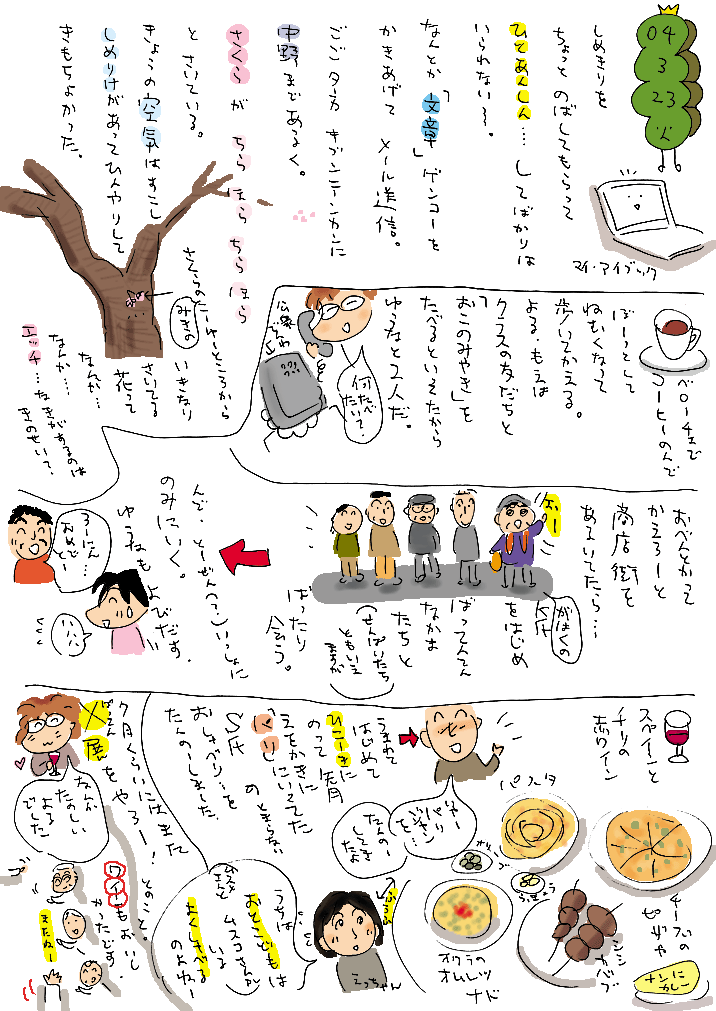 04
3
23
火
しめきりを
ちょっと のばしてもらって
ひとあんしん…してばかりは
いられない〜。
なんとか「文章」ゲンコーを
かきあげて メール送信。
ごご夕方 キブンテンカンに
中野まであるく。
さくらが ちらほら ちらほら
とさいている。
きょうの空気はすこし
しめりけがあってひんやりして
きもちよかった。
マイ・アイブック
さくらのたいゆーところから
みきの
いきなり
さいてる
花って
なんか…
なんか…
エッチ…なきがするのは
きのせいで。
ベローチェで
コーヒーのんで
ぼーっとして
ねむくなって
歩いてかえる。
よる・もえは
クラスの友だちと
「おこのみやき」を
たべるといえたから
ゆうなと2人だ。
何たべたい？
おべんとかって
かえろーと
商店街を
あるいてたら…
がはくの
S氏
をはじめ
ばってんてん
なかま
たちと
(せんぱいたちともいえますが)
ばったり
会う。
んで・とーぜん(?)いっしょに
のみにいく。
ゆうなも よびだす。
おめでとー
ハハハ
スペインと
チリの
赤ワイン
パスタ
オリーブ
らっきょう
チーズの
ピザ
シシカバブ
ナンにカレー
オクラの
オムレツ
ナド
うまれて
はじめて
ひこーきに
のって 先月
パリに
えをかきに
いってた
S氏
のとまらない
おしゃべりを
たんのーしました。
いやーパリじゃンを…
たんのーしてきたよ
えっちゃん
うちは
おとこどもは
ムスコさんが
いる
よくしゃべる
のよねー
7月くらいにはまた
ばってん
X展をやろー！とのこと。
ワインもおいし
かったです。
なんか
たのしい
よる
でした
またねー